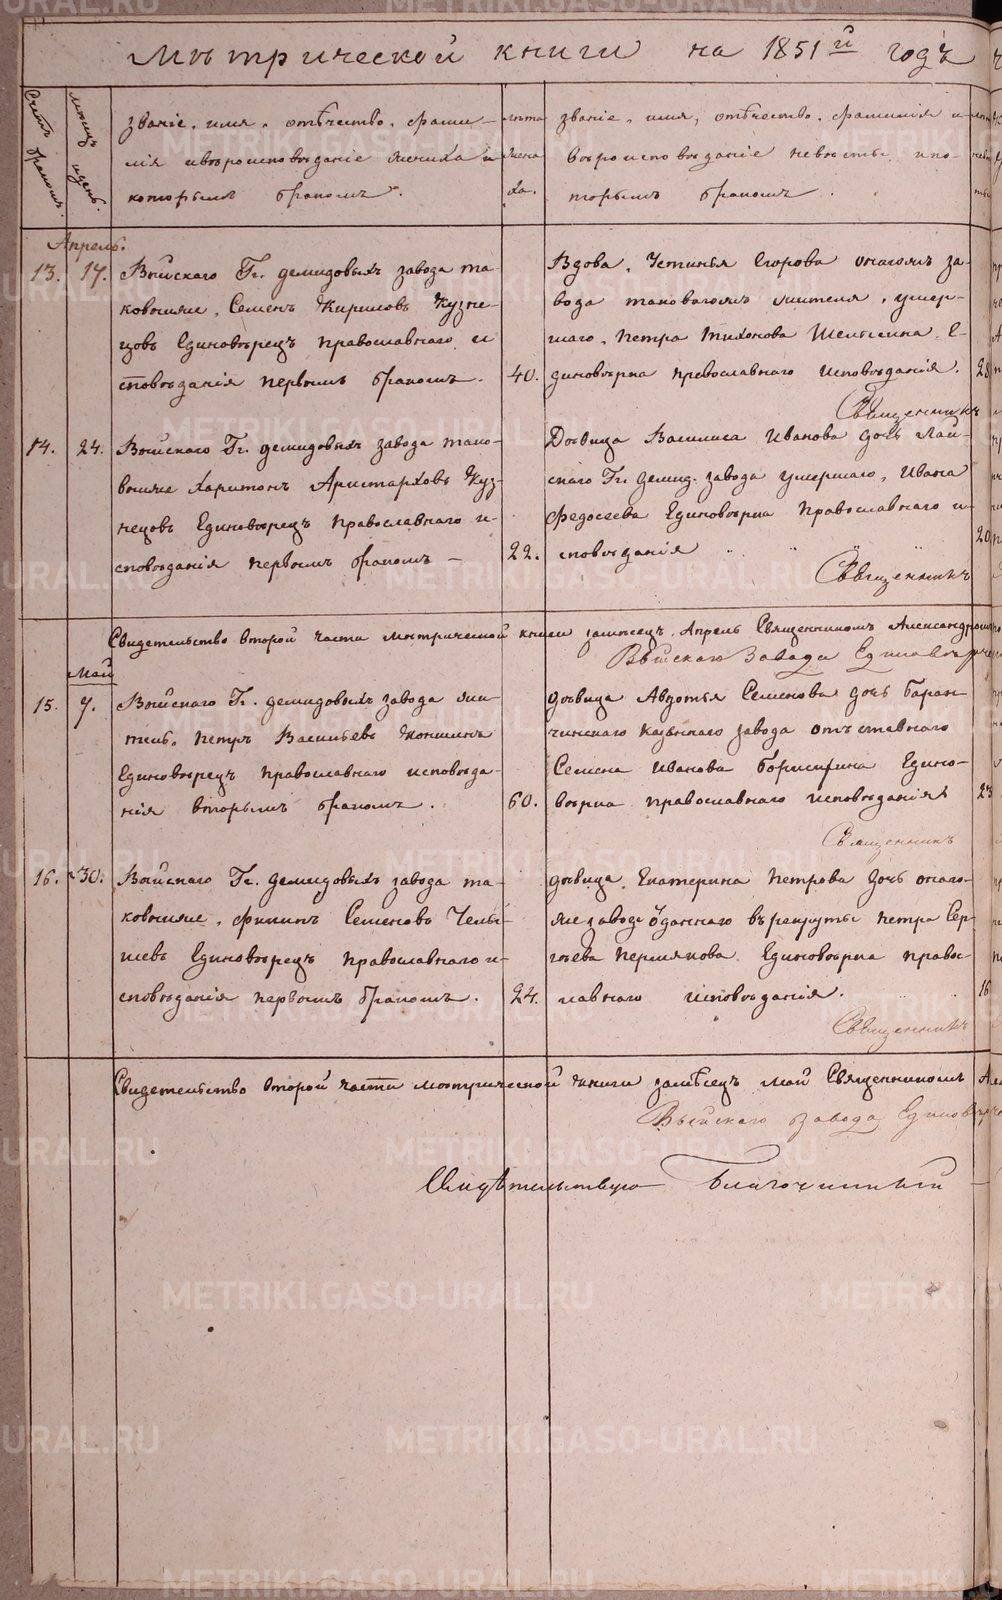 Метрической книги на 1851й годъ
Счетъ браковъ.
Месяцъ и день.
званіе, имя, отѣчество, фами-
лія ивѣроисповѣданіе жениха и
которымъ бракомъ.
лѣта
жени
ха.
званіе, имя, отѣчество, фамилія и
вѣроисповѣданіе невѣсты, ико-
торымъ бракомъ.
Апрель.
13. 17. Выйскаго Гг. демидовыхъ завода та-
ковоижие, Семенъ Кириловъ Кузне-
цовъ Единовѣрецъ православнаго и
сповѣданія первымъ бракомъ. 40.
Вдова, Устинья Егорова онагожъ за-
вода таковагожъ жителя, умер-
шаго, Петра Тихонова Шемякина, Е-
диновѣрка православнаго исповѣданія. 28
Священникъ
14. 24. Выйскаго Гг. демидовыхъ завода тако-
воижие Харитонъ Аристарховъ Куз-
нецовъ Единовѣрецъ православнаго и-
сповѣданія первымъ бракомъ 22.
Дѣвица Василиса Иванова дочь Лай-
скаго Гг. демид. завода умершаго, Ивана
Федосеева Единовѣрка Православнаго и-
сповѣданія 20
Священникъ
Свидетельство второй части метрической книги замѣсецъ Апрель Священникомъ Александромъ
Выйскаго Завода Единовѣрче
Май
15. 7. Выйскаго Гг. демидовыхъ завода жи-
тель, Петръ Васильевъ Коншинъ
Единовѣрецъ православнаго исповѣда-
нія вторымъ бракомъ. 60.
дѣвица Авдотья Семенова дочь Баран-
чинскаго казенного завода отъставнаго
Семена Иванова Едино-
вѣрка православнаго исповѣданія 23
Священникъ
16. 30. Выйскаго Гг. демидовыхъ завода та-
ковоижие, Филипъ Семеновъ Челы-
шевъ Единовѣрецъ православнаго и-
сповѣданія первымъ бракомъ. 24.
дѣвица, Екатерина Петрова дочь онаго-
же завода ѿданнаго въ рекруты Петра Сер-
гѣева Пермякова Единовѣрка правос-
лавнаго исповѣданія. 16
Священникъ
Свидетельство второй части метрической книги замѣсецъ май Священникомъ
Выйскаго завода Единовѣрче
Свидѣтельствую Благочинный
METRIKI.GASO-URAL.RU